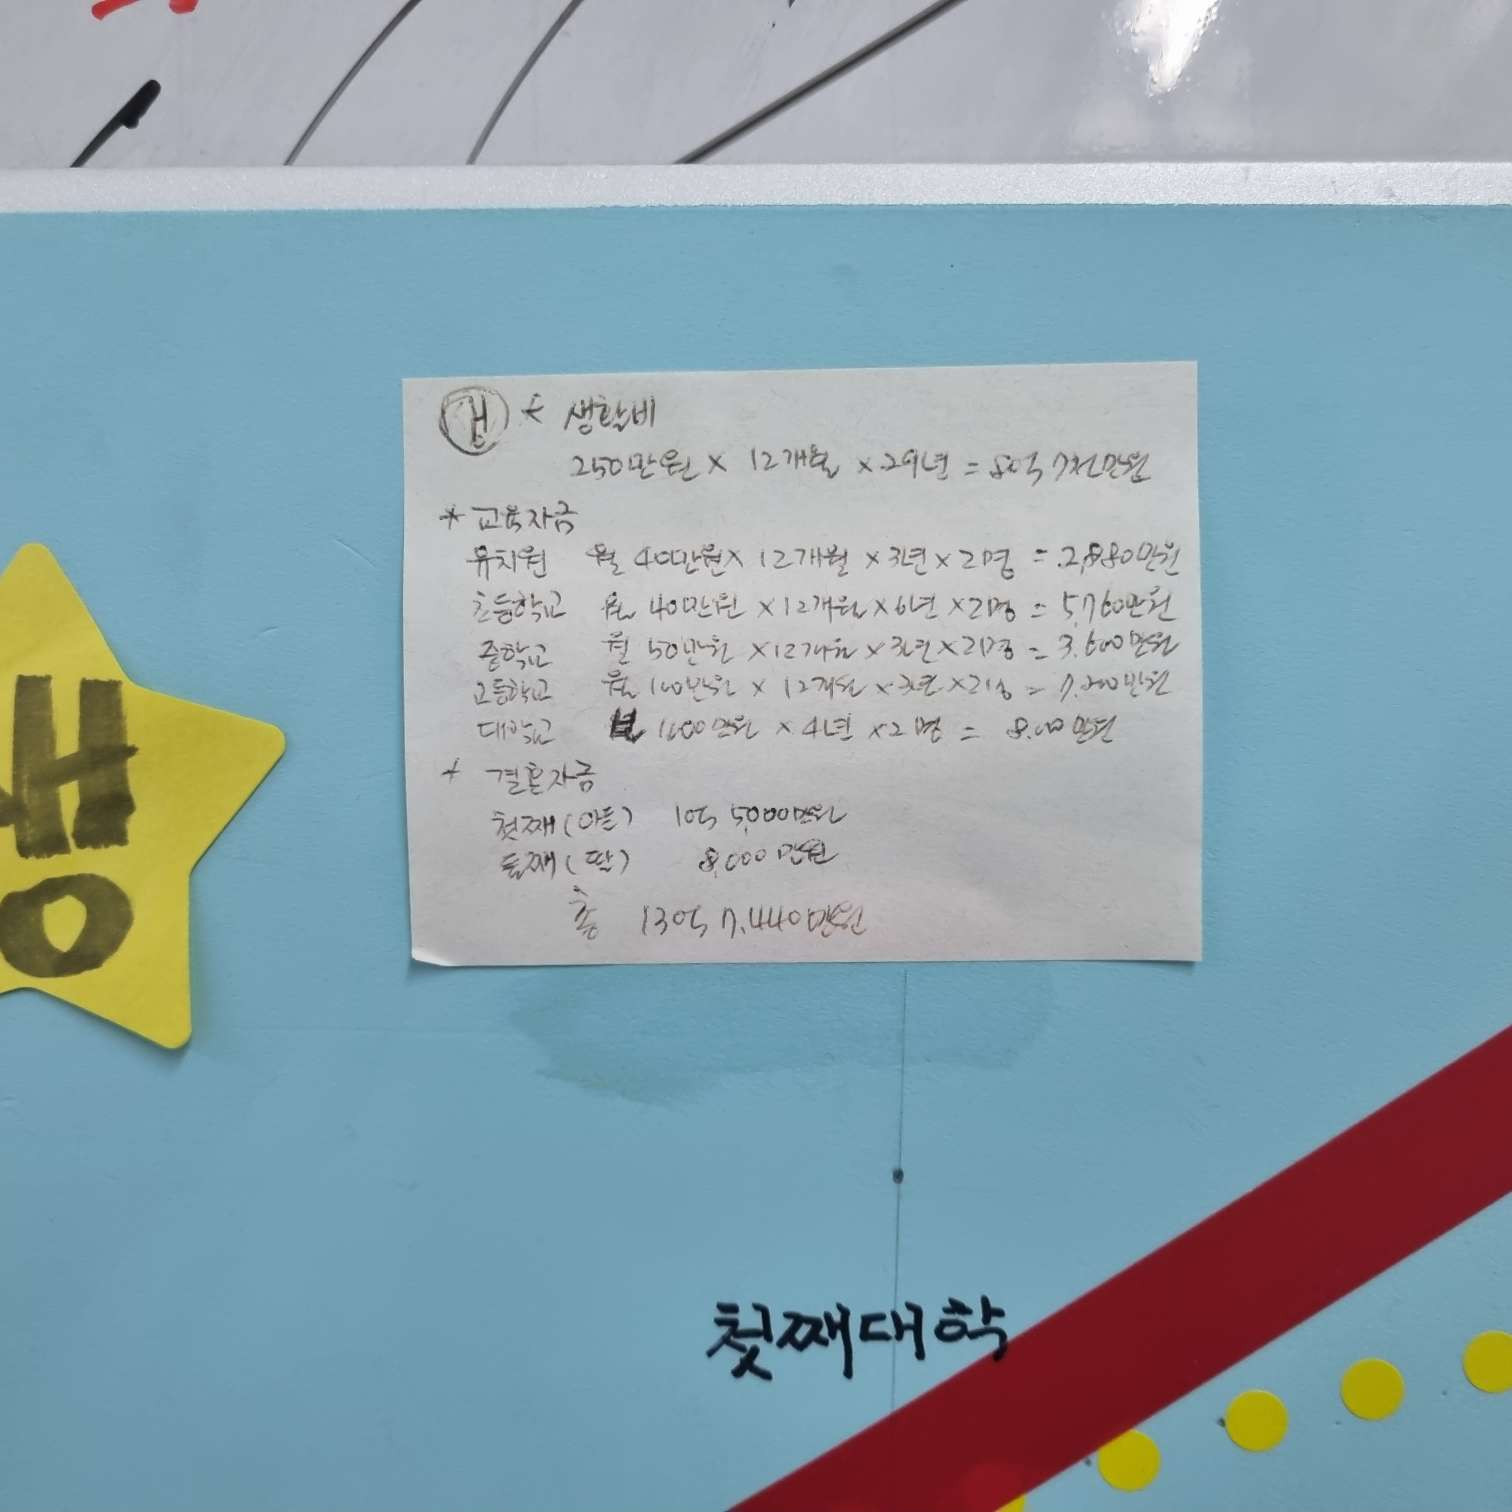 생
* 생활비
250만원 × 12개월 × 29년 = 8억 7천만원
* 교육자금
유치원 월 40만원 × 12개월 × 3년 × 2명 = 2,880만원
초등학교 월 40만원 × 12개월 × 6년 × 2명 = 5,760만원
중학교 월 50만원 × 12개월 × 3년 × 2명 = 3,600만원
고등학교 월 100만원 × 12개월 × 3년 × 2명 = 7,200만원
대학교 1000만원 × 4년 × 2명 = 8,000만원
* 결혼자금
첫째 (아들) 1억 5,000만원
둘째 (딸) 8,000만원
총 13억 7,440만원
첫째대학